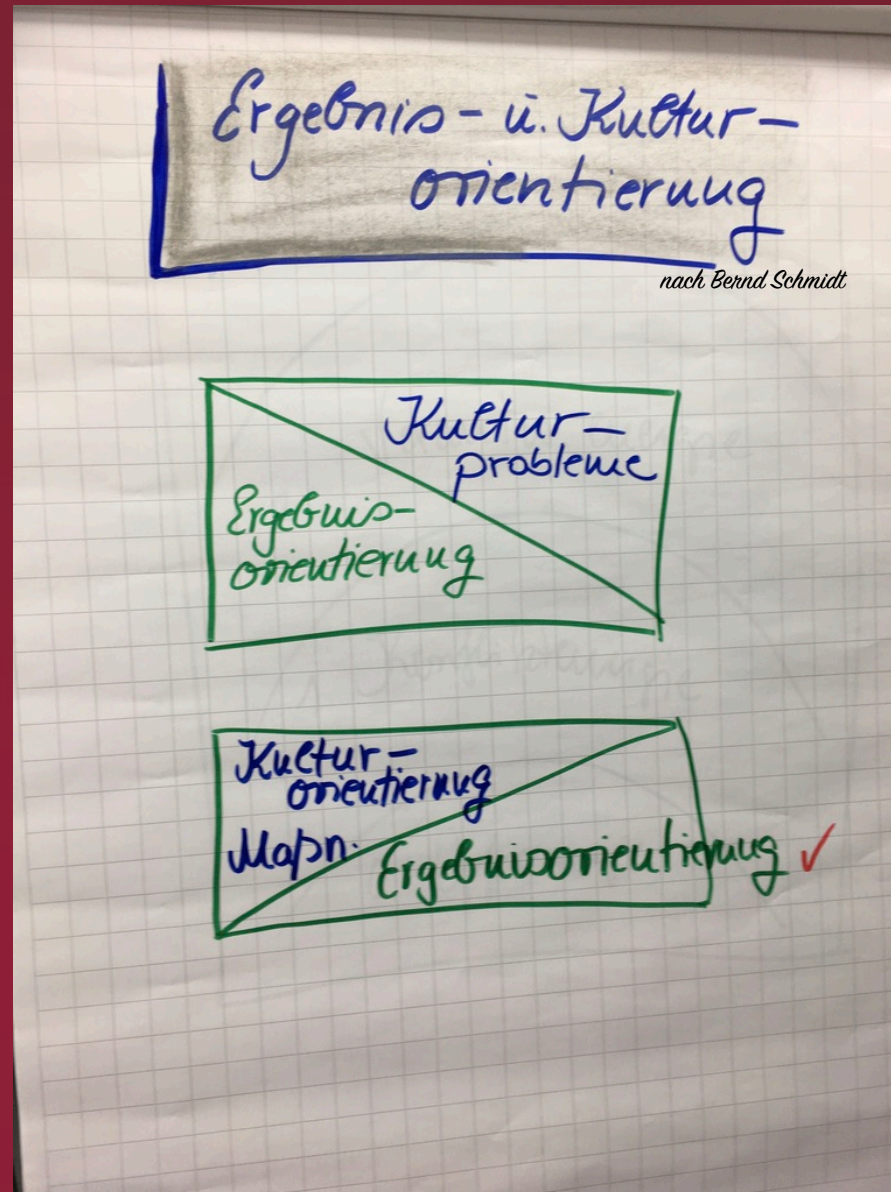 Ergebnis- u. Kultur-
orientierung
nach Bernd Schmidt
Kultur-
probleme
Ergebnis-
orientierung
Kultur-
orientierung
Maßn.
Ergebnisorientierung ✓